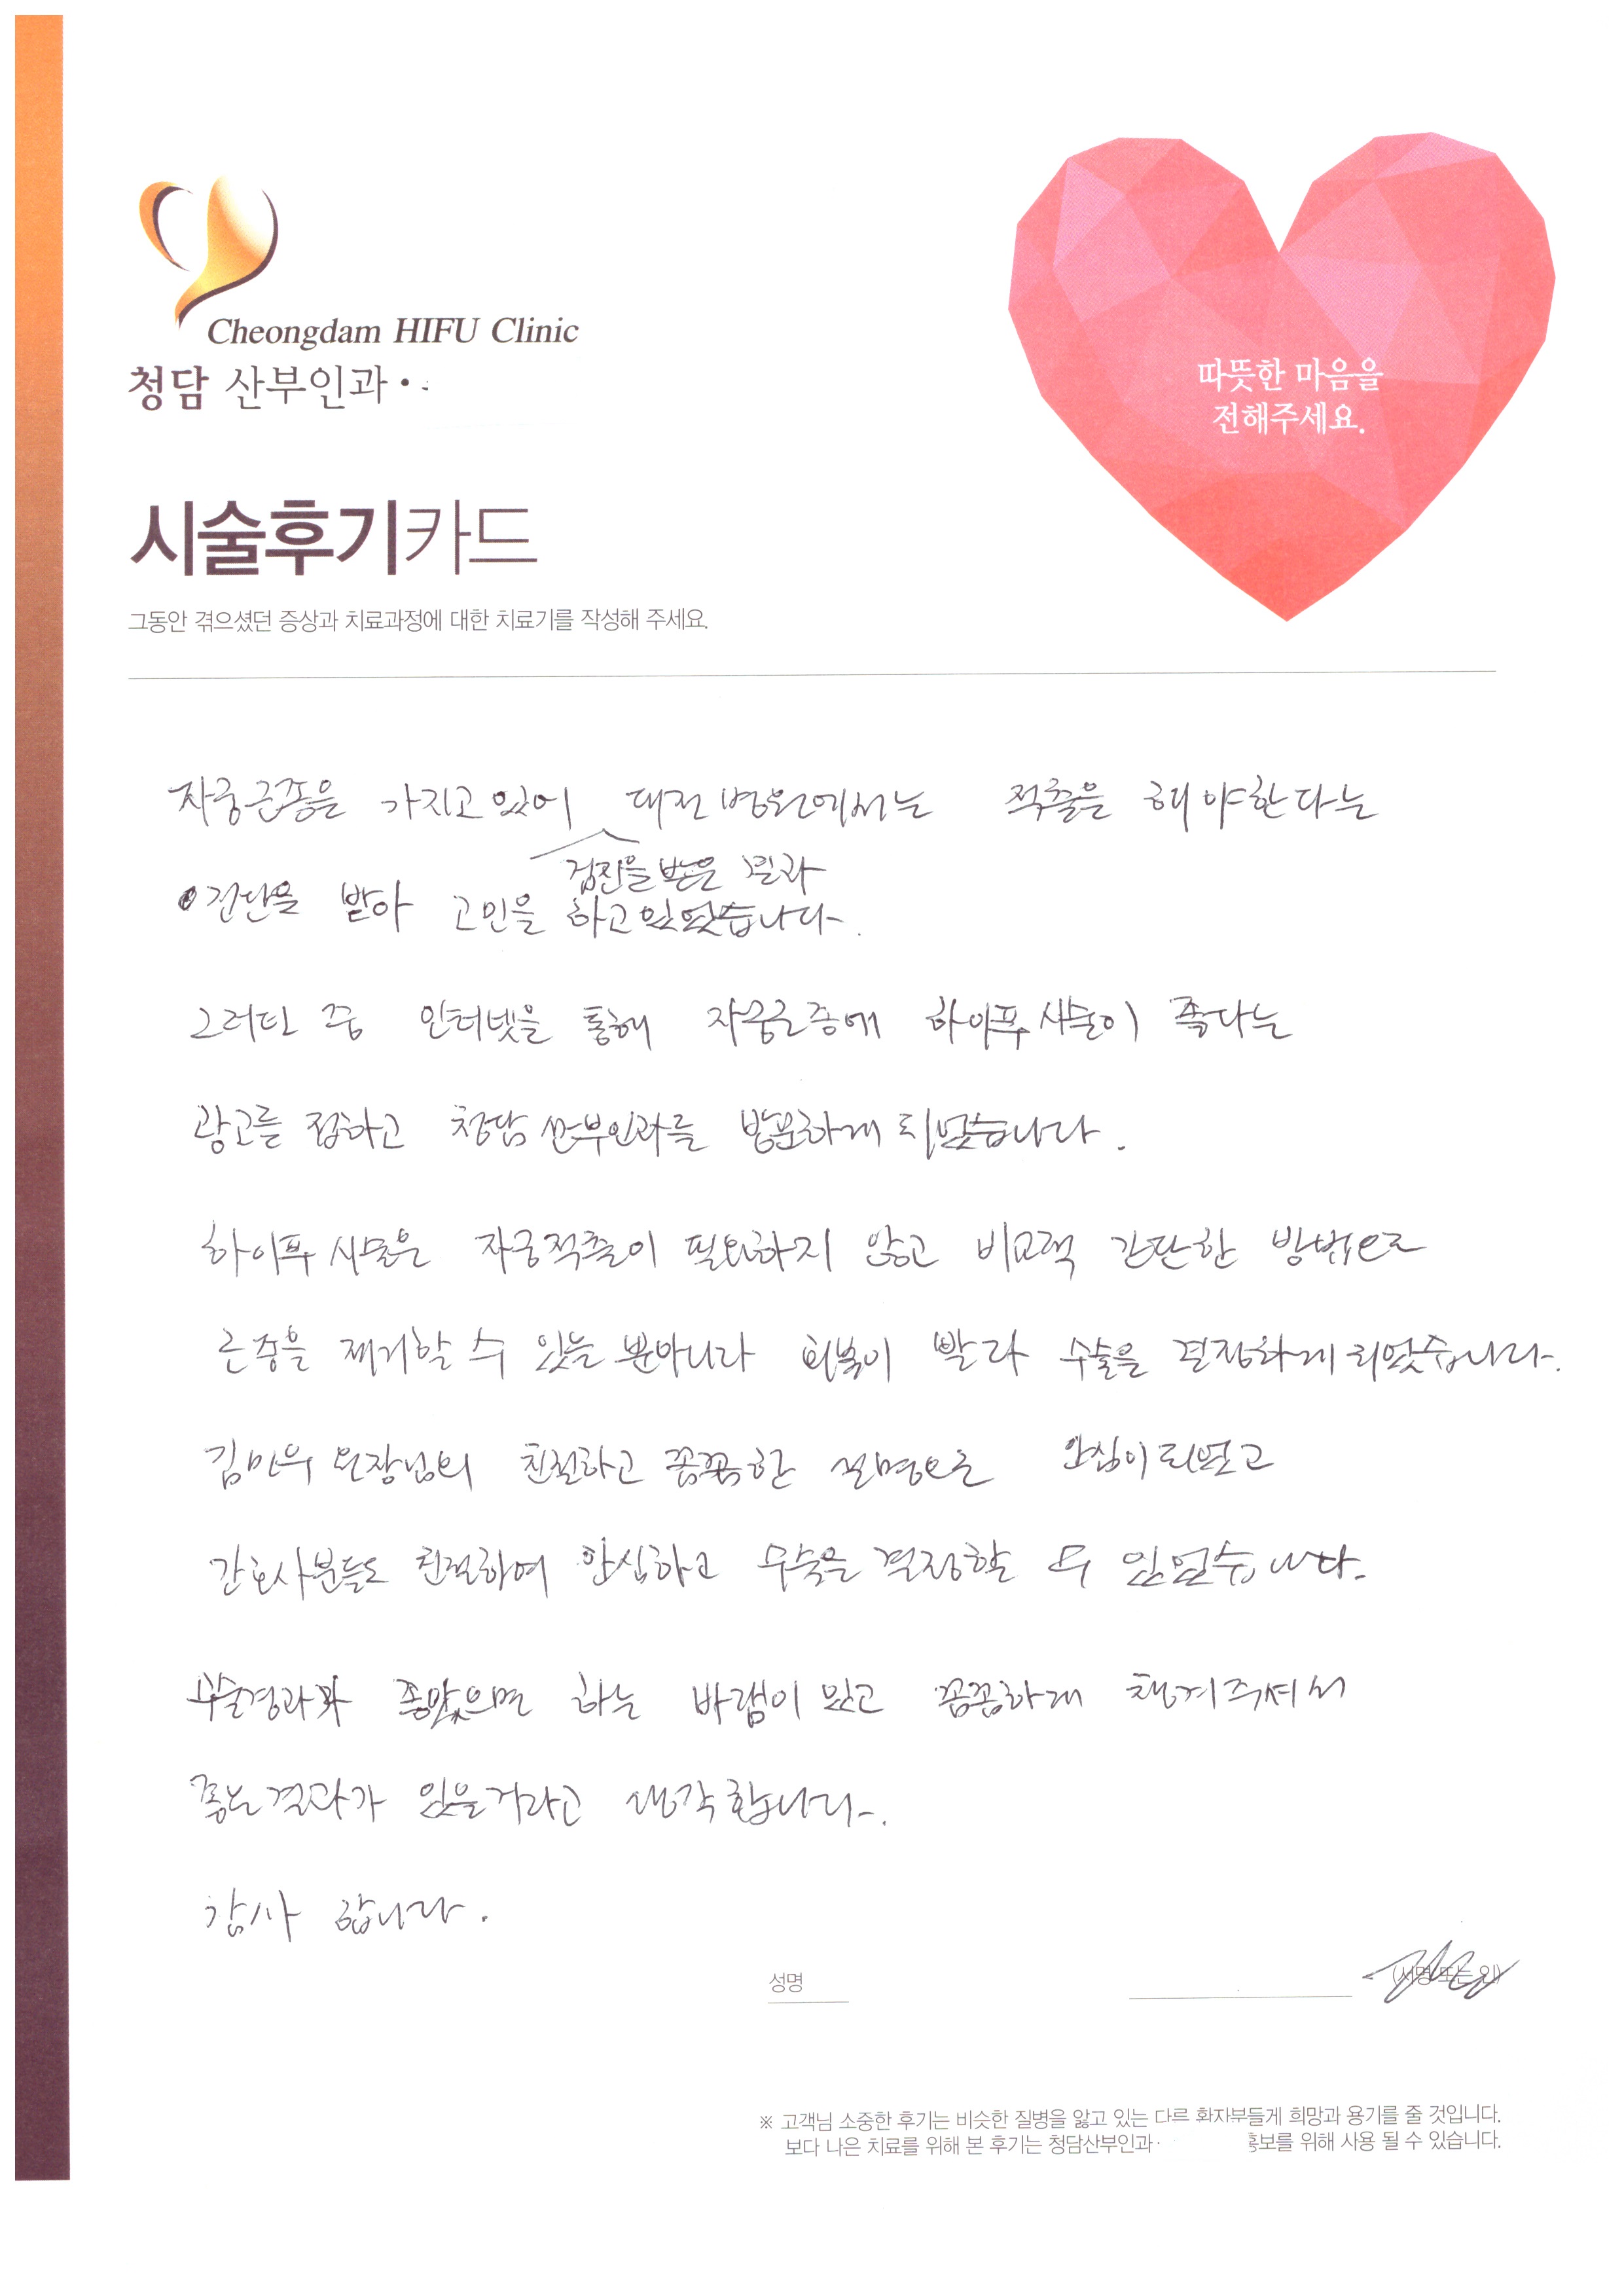 Cheongdam HIFU Clinic
청담 산부인과
따뜻한 마음을
전해주세요.
시술후기카드
그동안 겪으셨던 증상과 치료과정에 대한 치료기를 작성해 주세요.
자궁근종을 가지고 있어 대전 병원에서는 적출을 해야한다는
검진을 받은 결과
진단을 받아 고민을 하고 있었습니다.
그러던 중 인터넷을 통해 자궁근종에 하이푸 시술이 좋다는
광고를 접하고 청담산부인과를 방문하게 되었습니다.
하이푸 시술은 자궁적출이 필요하지 않고 비교적 간단한 방법으로
근종을 제거할 수 있는 뿐아니라 회복이 빨라 수술을 결정하게 되었습니다.
김민우 원장님의 친절하고 꼼꼼한 설명으로 안심이 되었고
간호사분들도 친절하여 안심하고 수술을 결정할 수 있었습니다.
수술경과가 좋았으면 하는 바램이 있고 꼼꼼하게 챙겨주셔서
좋은 결과가 있을거라고 생각합니다.
감사 합니다.
성명
(서명 또는 인)
※ 고객님 소중한 후기는 비슷한 질병을 앓고 있는 다른 환자분들게 희망과 용기를 줄 것입니다.
보다 나은 치료를 위해 본 후기는 청담산부인과 홍보를 위해 사용 될 수 있습니다.